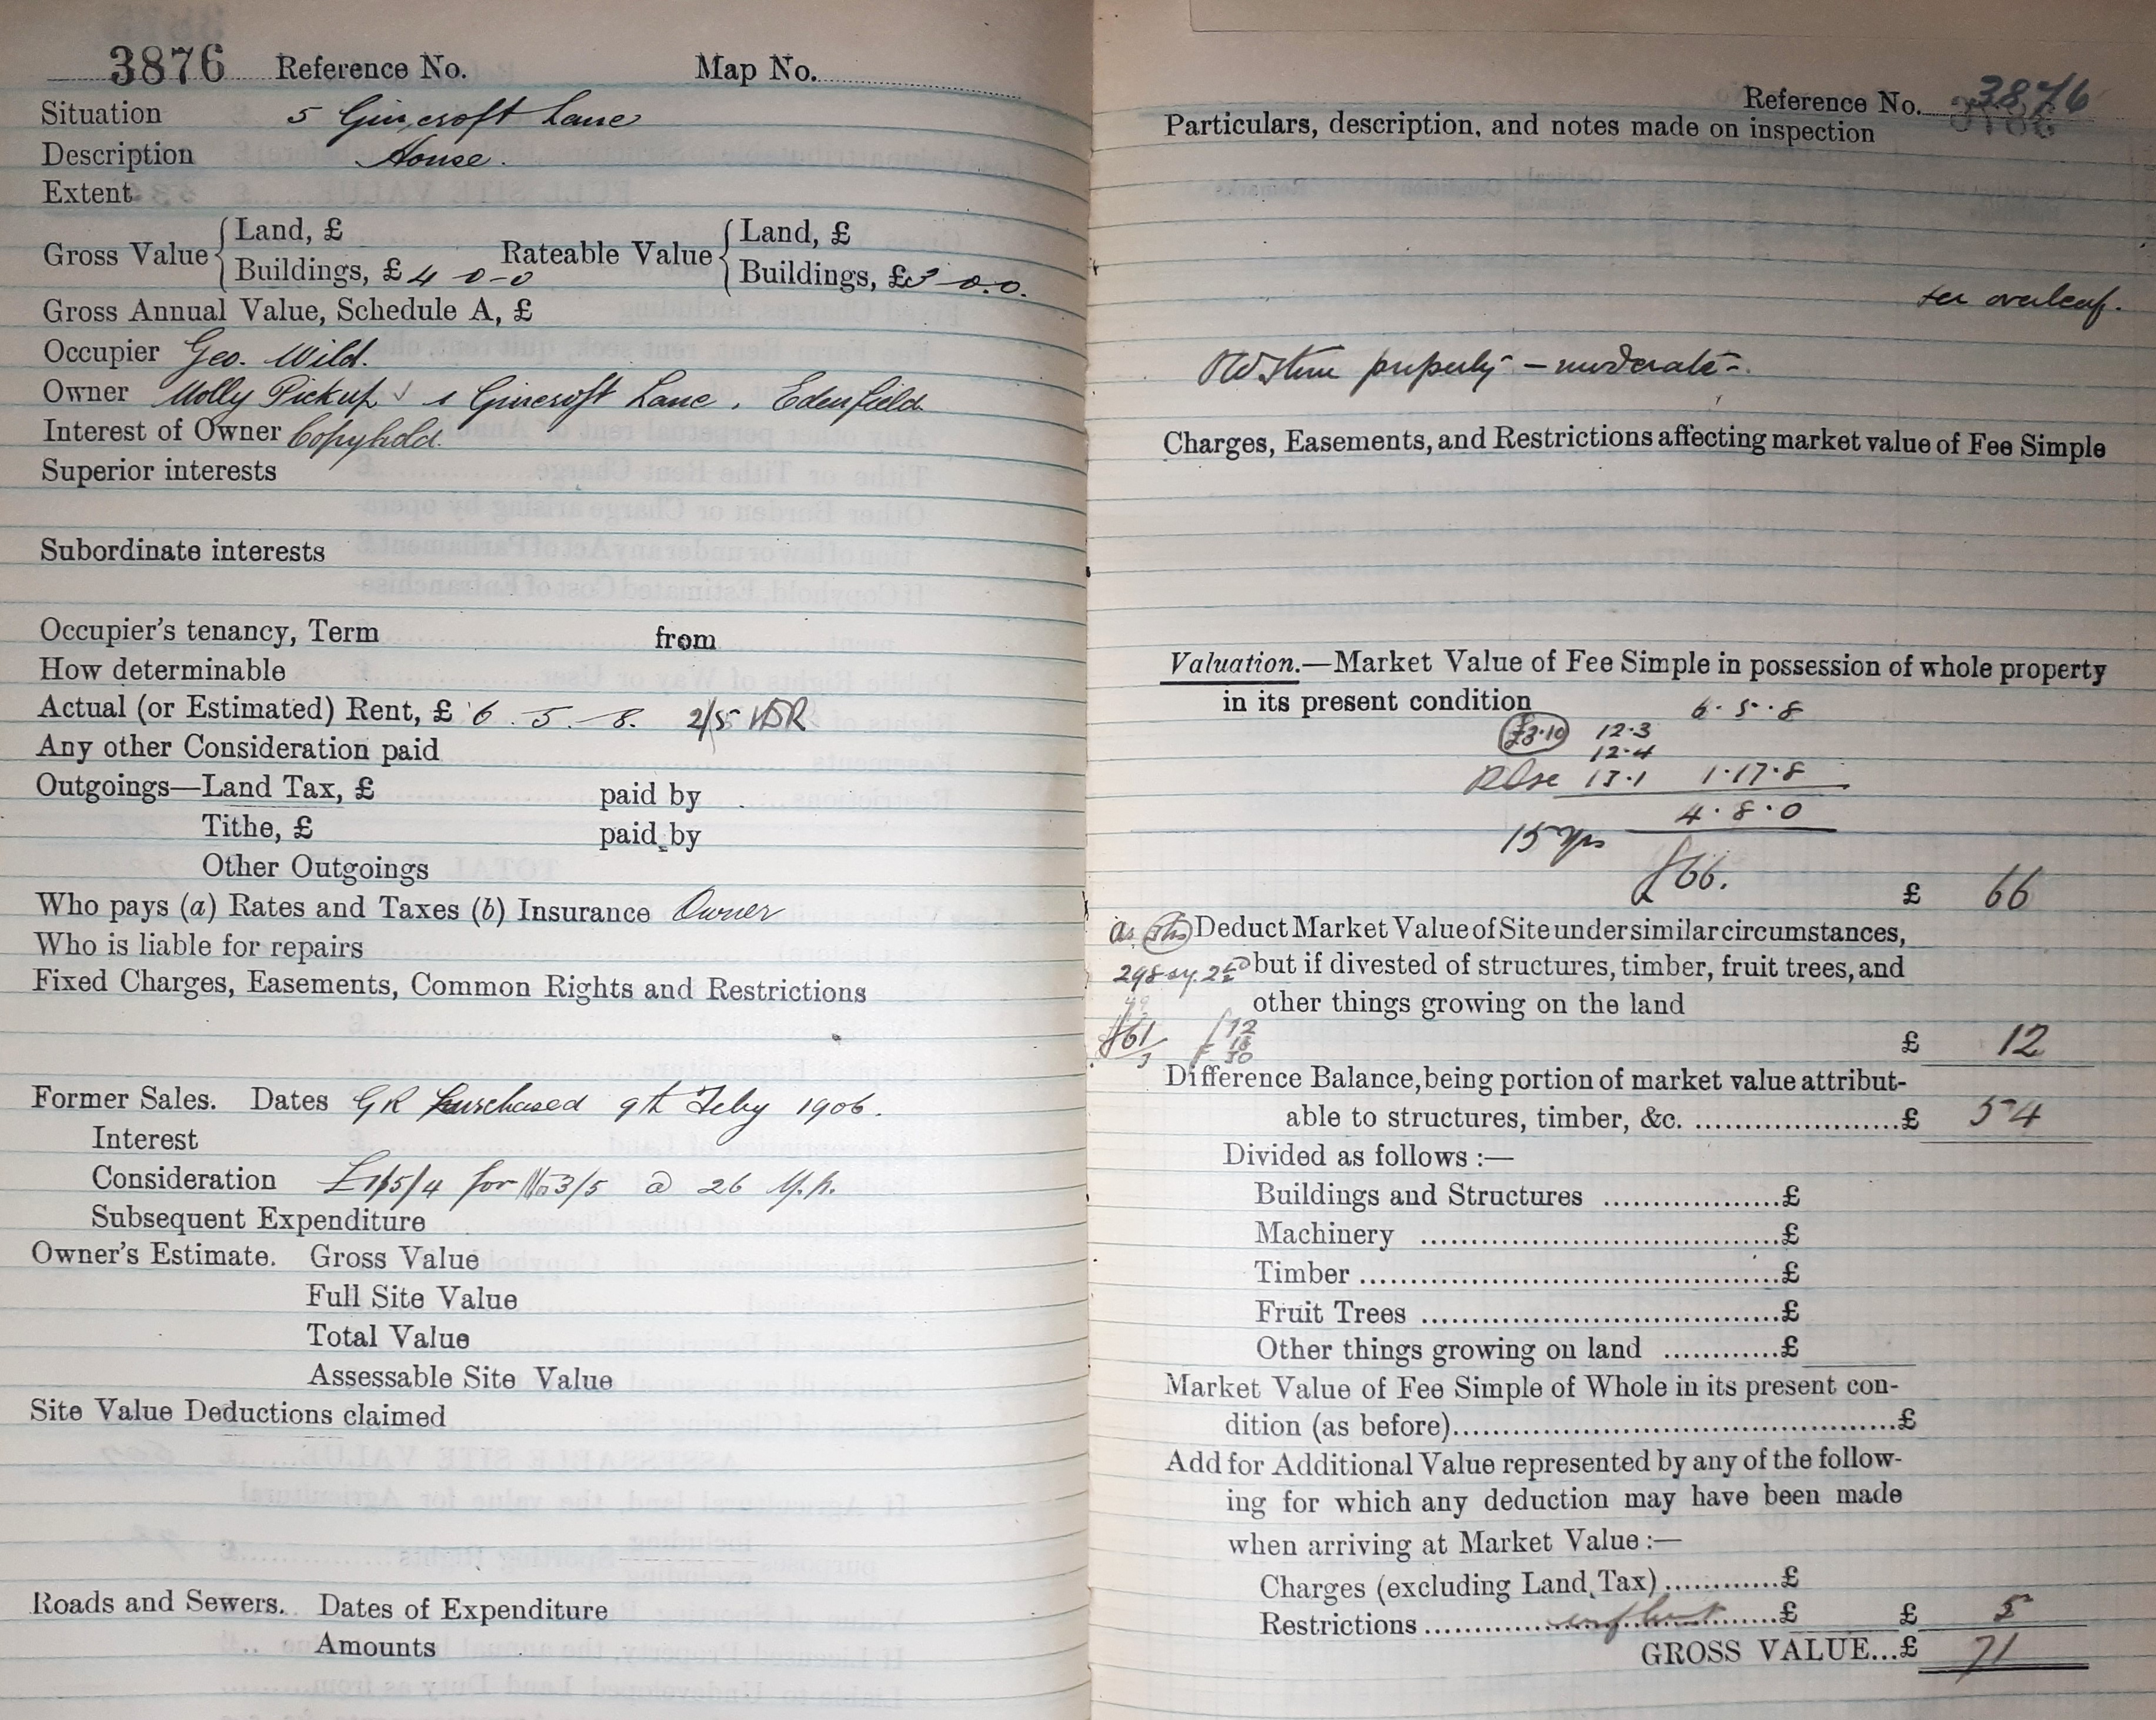 3876 Reference No. Map No.
Situation 5 Gincroft Lane
Description House.
Extent
Gross Value { Land, £
Buildings, £ 4-0-0
Rateable Value { Land, £
Buildings, £ 3-0.0.
Gross Annual Value, Schedule A, £
Occupier Geo. Wild.
Owner Molly Pickup ✓ 1 Gincroft Lane, Edenfield
Interest of Owner Copyhold.
Superior interests
Subordinate interests
Occupier's tenancy, Term from
How determinable
Actual (or Estimated) Rent, £ 6. 5 - 8. 2/5
Any other Consideration paid
Outgoings—Land Tax, £ paid by
Tithe, £ paid by
Other Outgoings
Who pays (a) Rates and Taxes (b) Insurance Owner
Who is liable for repairs
Fixed Charges, Easements, Common Rights and Restrictions
Former Sales. Dates GR Purchased 9th Feby 1906.
Interest
Consideration for 3/5 @ 26 y.p.
Subsequent Expenditure
Owner's Estimate. Gross Value
Full Site Value
Total Value
Assessable Site Value
Site Value Deductions claimed
Roads and Sewers. Dates of Expenditure
Amounts
Reference No. 3876
Particulars, description, and notes made on inspection
see overleaf.
Old stone property - moderate.
Charges, Easements, and Restrictions affecting market value of Fee Simple
Valuation.—Market Value of Fee Simple in possession of whole property
in its present condition
6.5.8
£3.10 12.3
12.4
13.1 1.17.8
4.8.0
15 yps
£66.
£ 66
as Deduct Market Value of Site under similar circumstances,
298 sy. but if divested of structures, timber, fruit trees, and
other things growing on the land
£61 12
18
30
£ 12
Difference Balance, being portion of market value attribut-
able to structures, timber, &c. ....................£ 54
Divided as follows :—
Buildings and Structures ..................£
Machinery .....................................£
Timber ..........................................£
Fruit Trees ......................................£
Other things growing on land ............£
Market Value of Fee Simple of Whole in its present con-
dition (as before).............................................£
Add for Additional Value represented by any of the follow-
ing for which any deduction may have been made
when arriving at Market Value :—
Charges (excluding Land Tax) ............£
Restrictions ....................£ £ 5
GROSS VALUE...£ 71